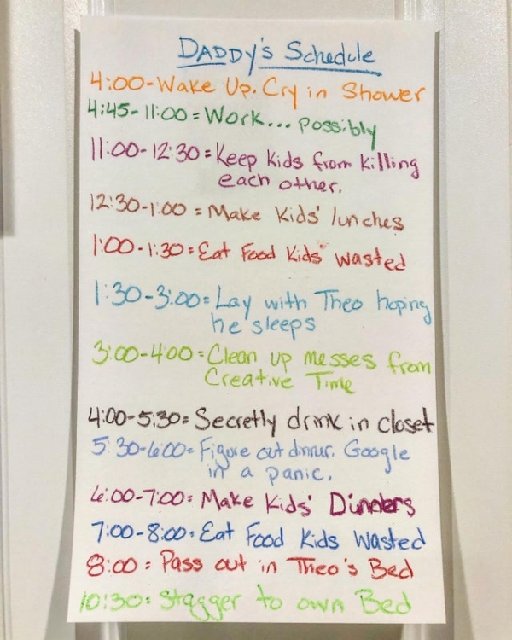 DADDY's Schedule
4:00-Wake Up. Cry in Shower
4:45-11:00=Work... possibly
11:00-12:30=Keep Kids from Killing
each other.
12:30-1:00=Make Kids' lunches
1:00-1:30=Eat Food Kids' wasted
1:30-3:00=Lay with Theo hoping
he sleeps
3:00-4:00=Clean up messes from
Creative Time
4:00-5:30=Secretly drink in closet
5:30-6:00=Figure out dinner. Google
in a panic.
6:00-7:00=Make Kids' Dinners
7:00-8:00=Eat Food Kids Wasted
8:00=Pass out in Theo's Bed
10:30=Stagger to own Bed